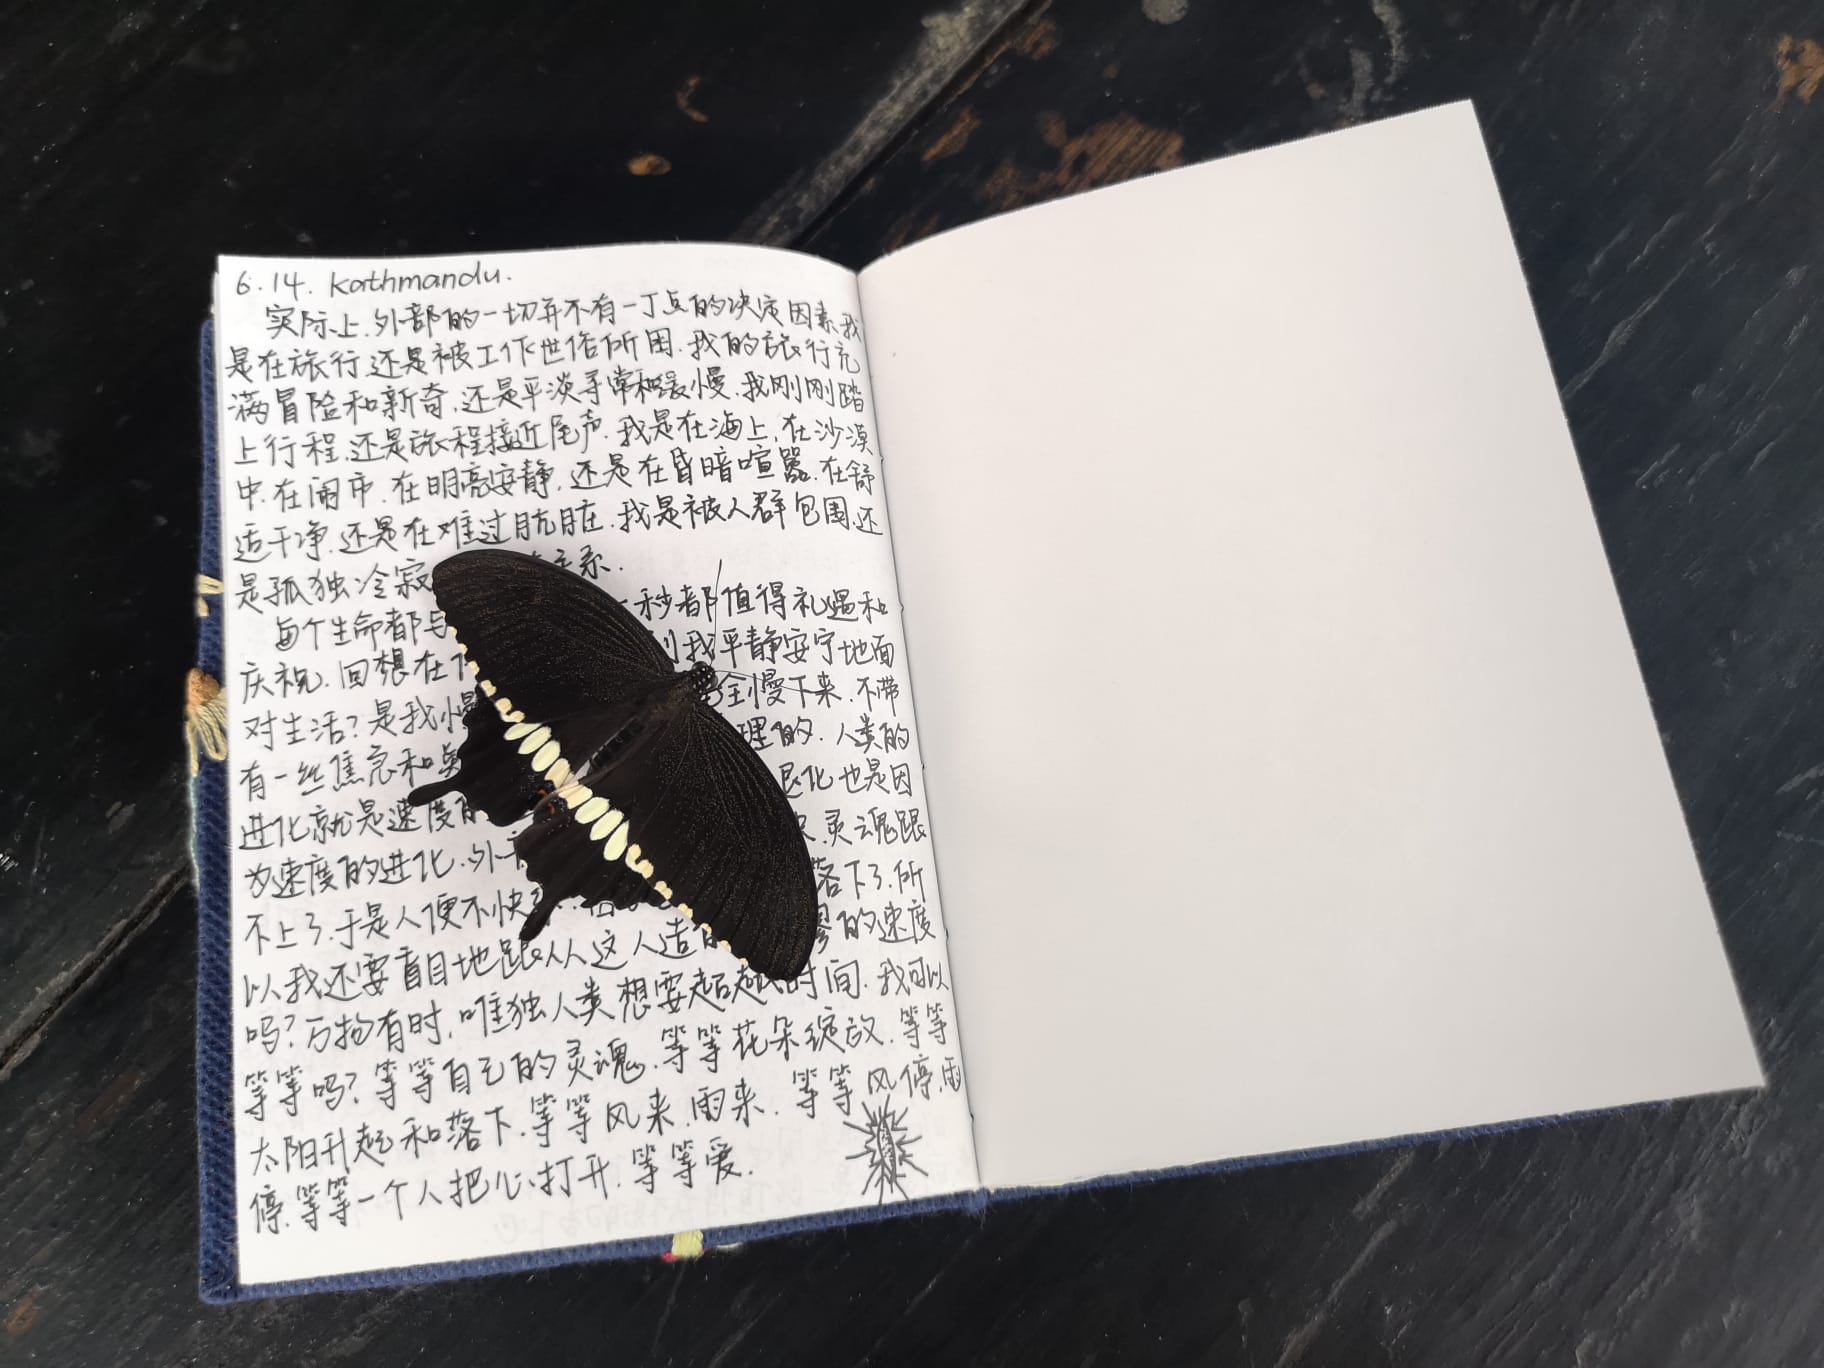 6.14. Kathmandu.
实际上.外部的一切并不有一丁点的决定因素.我
是在旅行.还是被工作世俗所困.我的旅行充
满冒险和新奇.还是平淡寻常和缓慢.我刚刚踏
上行程.还是旅程接近尾声.我是在海上.在沙漠
中.在闹市.在明亮安静.还是在昏暗喧嚣.在舒
适干净.还是在难过肮脏.我是被人群包围.还
是孤独冷寂 关系.
每个生命都与 一秒都值得礼遇和
庆祝.回想在 我平静安宁地面
对生活?是我慢 慢下来.不带
有一丝焦急和 理的.人类的
进化就是速度的 退化也是因
为速度的进化.外 灵魂跟
不上了.于是人便不快 落下了.所
以我还要盲目地跟从这人造的 的速度
吗?万物有时.唯独人类想要超越时间.我可以
等等吗?等等自己的灵魂.等等花朵绽放.等等
太阳升起和落下.等等风来.雨来.等等风停.雨
停.等等一个人把心打开.等等爱.